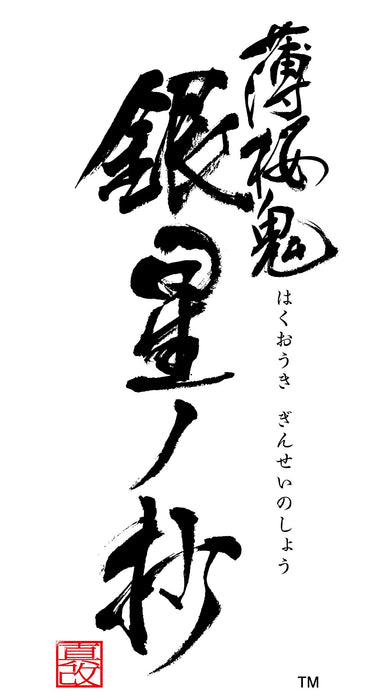 薄桜鬼
銀星ノ抄
はくおうき ぎんせいのしょう
真改
TM